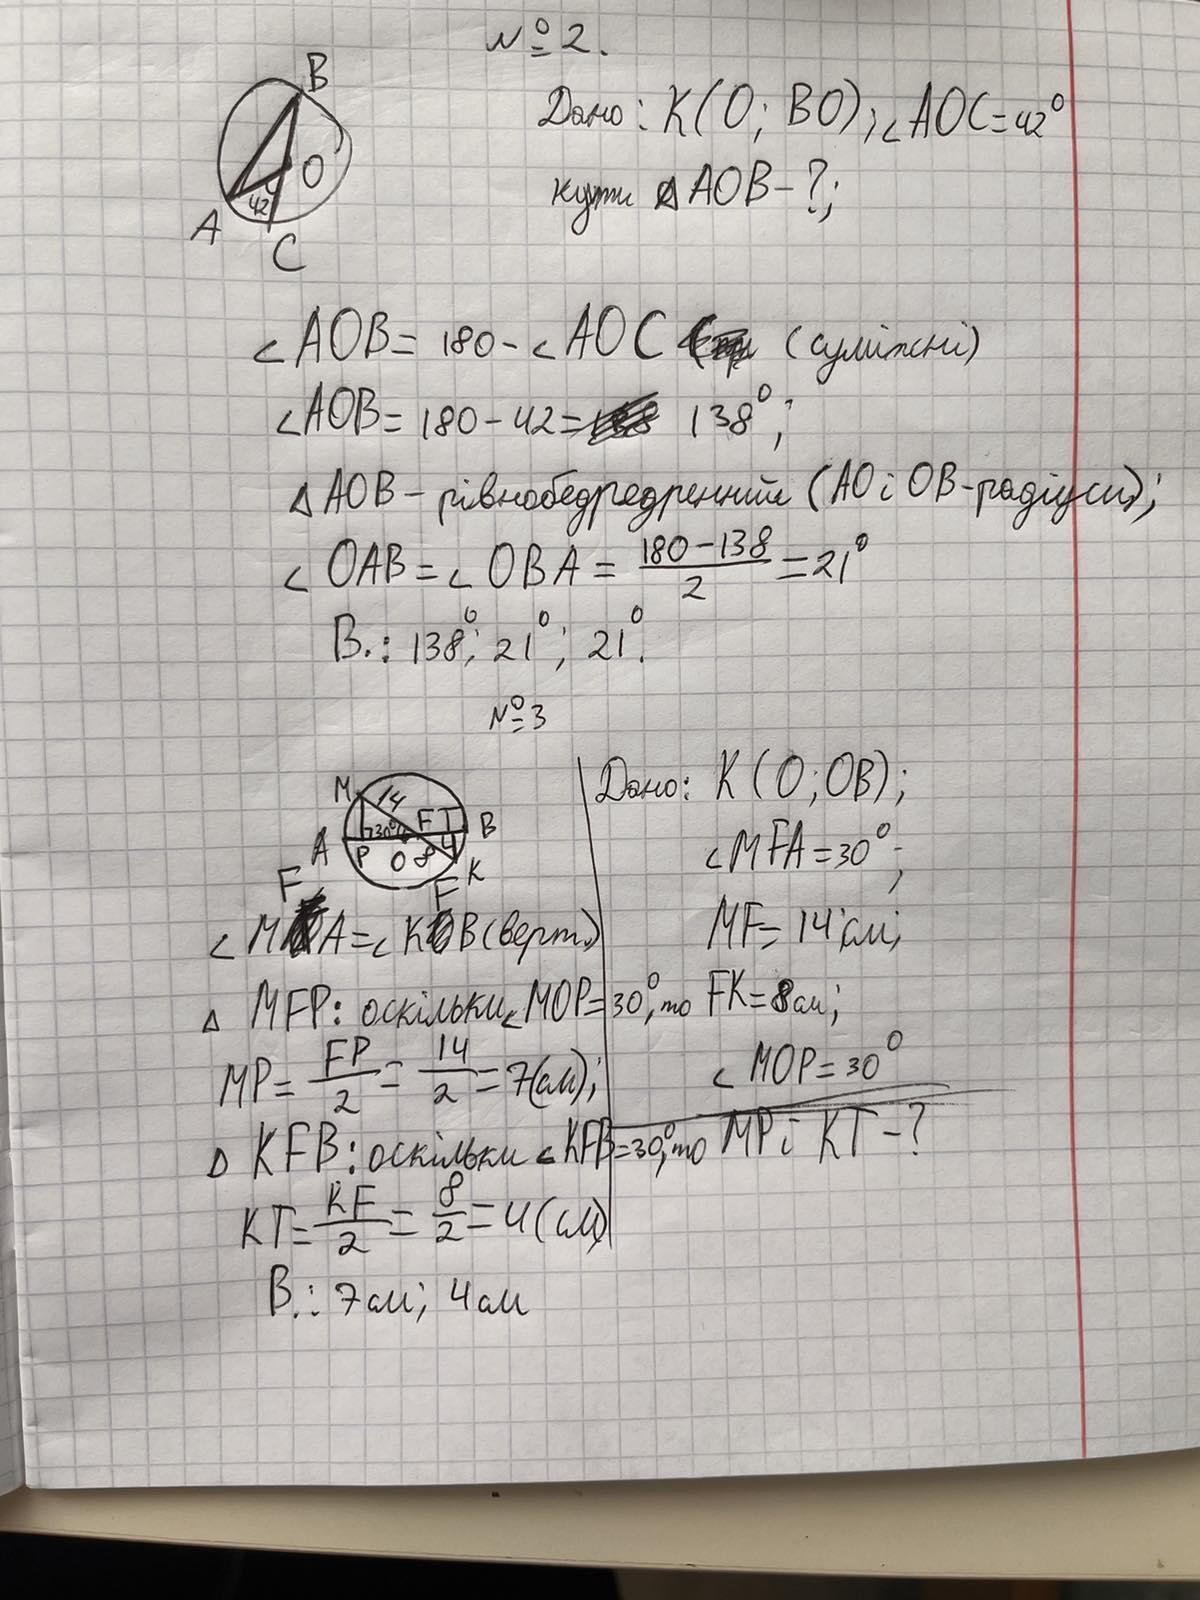 №2.
B
O
42
A
C
Дано: K(O; BO); ∠AOC=42°
кути △AOB-?;
∠AOB= 180-∠AOC (суміжні)
∠AOB= 180-42= 138°;
△AOB-рівнобедредренний (AO і OB-радіуси);
∠OAB=∠OBA= (180-138)/2=21°
В.: 138°; 21°; 21°.
№3
M 14
A 30° F T B
P O 8 4 K
∠MFA=∠KFB(верт.)
△ MFP: оскільки ∠MOP=30°, то
MP= FP/2= 14/2=7(см);
△ KFB: оскільки ∠KFB=30°, то
KT= KF/2= 8/2=4(см)
В.: 7см; 4см
Дано: K(O; OB);
∠MFA=30°;
MF=14см;
FK=8см;
∠MOP=30°
MP і KT-?